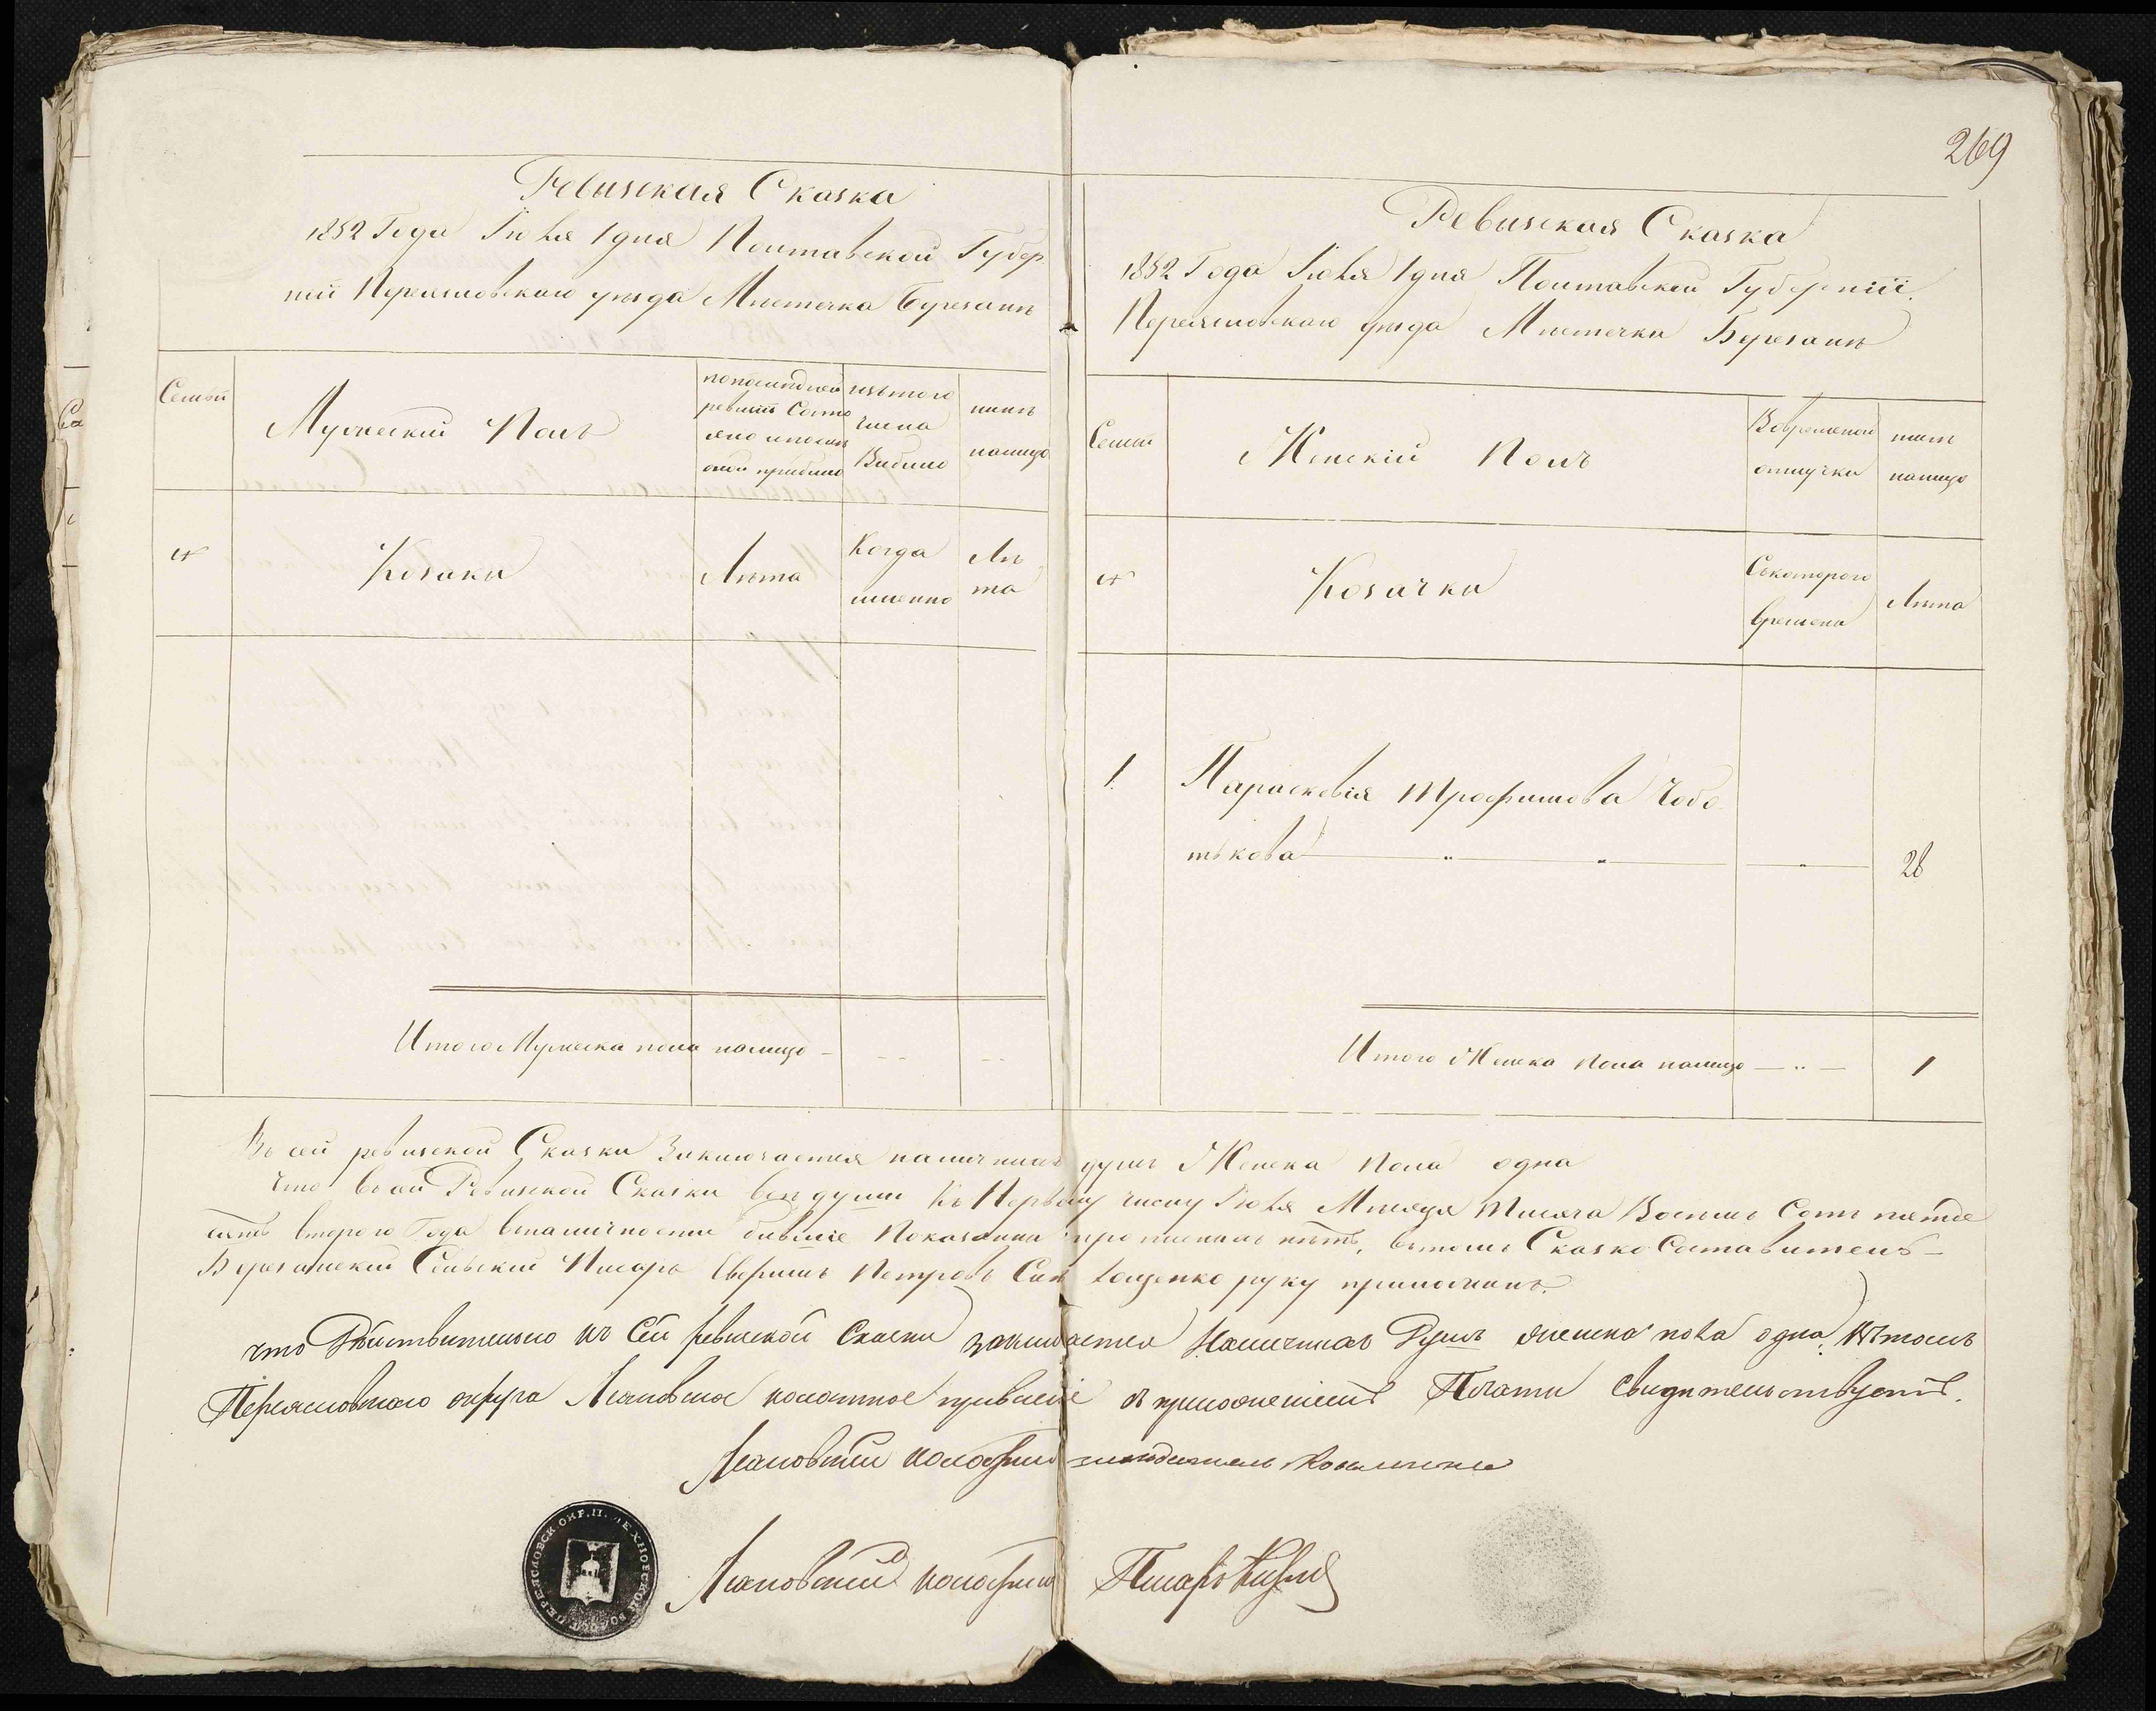 269
Ревизская Сказка
1852 Года Июля 1 дня Полтавской Губер
ніи Переясловскаго уезда Мѣстечка Березани
Семьи
Мужеский Полъ
попоследней
ревизіи Состо
яло и после
оной прибыло
изътого
числа
Выбыло
ныне
налицо
№
Козаки
Лѣта
Когда
именно
Лѣ
та
Итого Мужеска пола налицо
Ревизская Сказка
1852 Года Июля 1 дня Полтавской Губерніи
Переясловскаго уезда Мѣстечка Березани
Семьи
Женскій Полъ
Вовременной
отлучки
ныне
налицо
№
Козачки
Скотораго
времени
Лѣта
1
Парасковія Трофимова Чобо
тькова
28
Итого Женска Пола налицо
1
Въ сей ревизской Сказки Заключается наличныхъ душъ Женска Пола одна
Что въ сей Ревизской Сказки все души Къ Первому числу Июля Месяца Тысяча Восемь Сотъ пятде
сятъ второго Года вналичности бывшіе Показанны прописныхъ нѣтъ, втомъ Сказко Составитель
Березанский Сельский Писарь Петровъ Сынъ руку приложилъ.
что Действительно въ Сей ревизской Сказки заключается Наличныхъ Душъ женска пола одна, Втомъ
Переясловскаго округа волостное правленіе съ приложеніемъ Печати свидетельствуетъ.
волостный
волостный Писарь